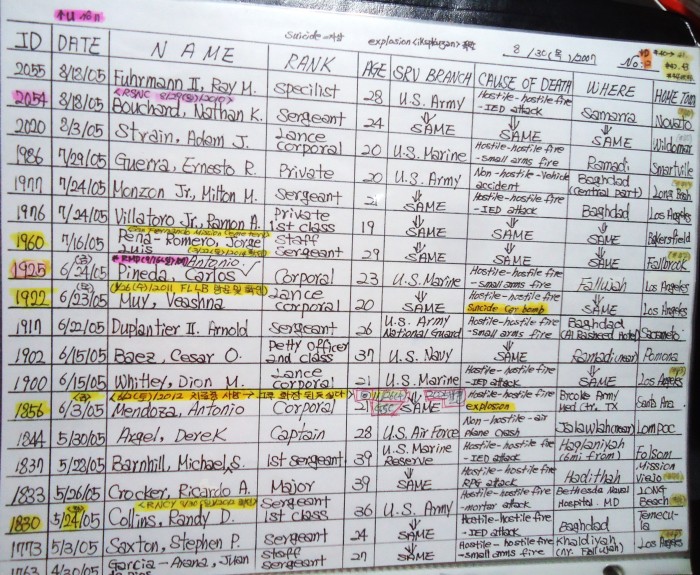 Suicide explosion 8/30(목)/2007 No:
ID DATE NAME RANK AGE SRV BRANCH CAUSE OF DEATH WHERE HOME TOWN
2055 8/18/05 Fuhrmann II, Ray M. Specilist 28 U.S. Army Hostile-hostile fire -IED attack Samarra Novato
2054 8/18/05 Bouchard, Nathan K. Sergeant 24 ⇓ SAME ⇓ SAME ⇓ SAME Wildomar
2020 8/3/05 Strain, Adam J. Lance corporal 20 U.S. Marine Hostile-hostile fire -small arms fire Ramadi Smartville
1986 7/29/05 Guerra, Ernesto R. Private 20 U.S. Army Non-hostile-vehicle accident Baghdad (Central part) Long Bch
1977 7/24/05 Monzon Jr, Milton M. Sergeant 21 ⇓ SAME Hostile-hostile fire -IED attack Baghdad Los Angeles
1976 7/24/05 Villatoro Jr, Ramon A. Private 1st class 19 ⇓ SAME ⇓ SAME ⇓ SAME Bakersfield
1960 7/16/05 Pena-Romero, Jorge Luis Staff Sergeant 29 ⇓ SAME ⇓ SAME ⇓ SAME Fallbrook
1925 6/24/05 Pineda, Carlos Antonio Corporal 23 U.S. Marine Hostile-hostile fire -small arms fire Fallujah Los Angeles
1922 6/23/05 Muy, Veashna Lance corporal 20 ⇓ SAME Hostile-hostile fire Suicide car bomb ⇓ SAME Los Angeles
1917 6/22/05 Duplantier II. Arnold Sergeant 26 U.S. Army National Guard Hostile-hostile fire -small arms fire Baghdad
1902 6/15/05 Baez, Cesar O. Petty officer 2nd class 37 U.S. Navy ⇓ SAME Ramadi(near) Pomona
1900 6/15/05 Whitley, Dion M. Lance corporal 21 U.S. Marine Hostile-hostile fire -IED attack ⇓ SAME Los Angeles
1856 6/3/05 Mendoza, Antonio Corporal 21 SAME Hostile-hostile fire explosion Brooke Army Med Ctr. TX Santa Ana
1844 5/30/05 Argel, Derek Captain 28 U.S. Air Force Non-hostile-air plane crash Jalawlah(near) Lompoc
1837 5/28/05 Barnhill, Michael S. 1st sergeant 39 U.S. Marine Reserve Hostile-hostile fire -IED attack Haqlaniyah (6mi from) Folsom
1833 5/26/05 Crocker, Ricardo A. Major 39 ⇓ SAME Hostile-hostile fire RPG attack Hadithah Mission Viejo
1830 5/24/05 Collins, Randy D. Sergeant 1st class 36 U.S. Army Hostile-hostile fire -mortar attack Bethesda Naval Hospital. MD Long Beach
1773 5/3/05 Saxton, Stephen P. Sergeant 24 ⇓ SAME Hostile-hostile fire -IED attack Baghdad Temecula
1763 4/30/05 Garcia-Arana, Juan Staff sergeant 27 ⇓ SAME Hostile-hostile fire -small arms fire Khaldiyah (nr. Fallujah) Los Angeles